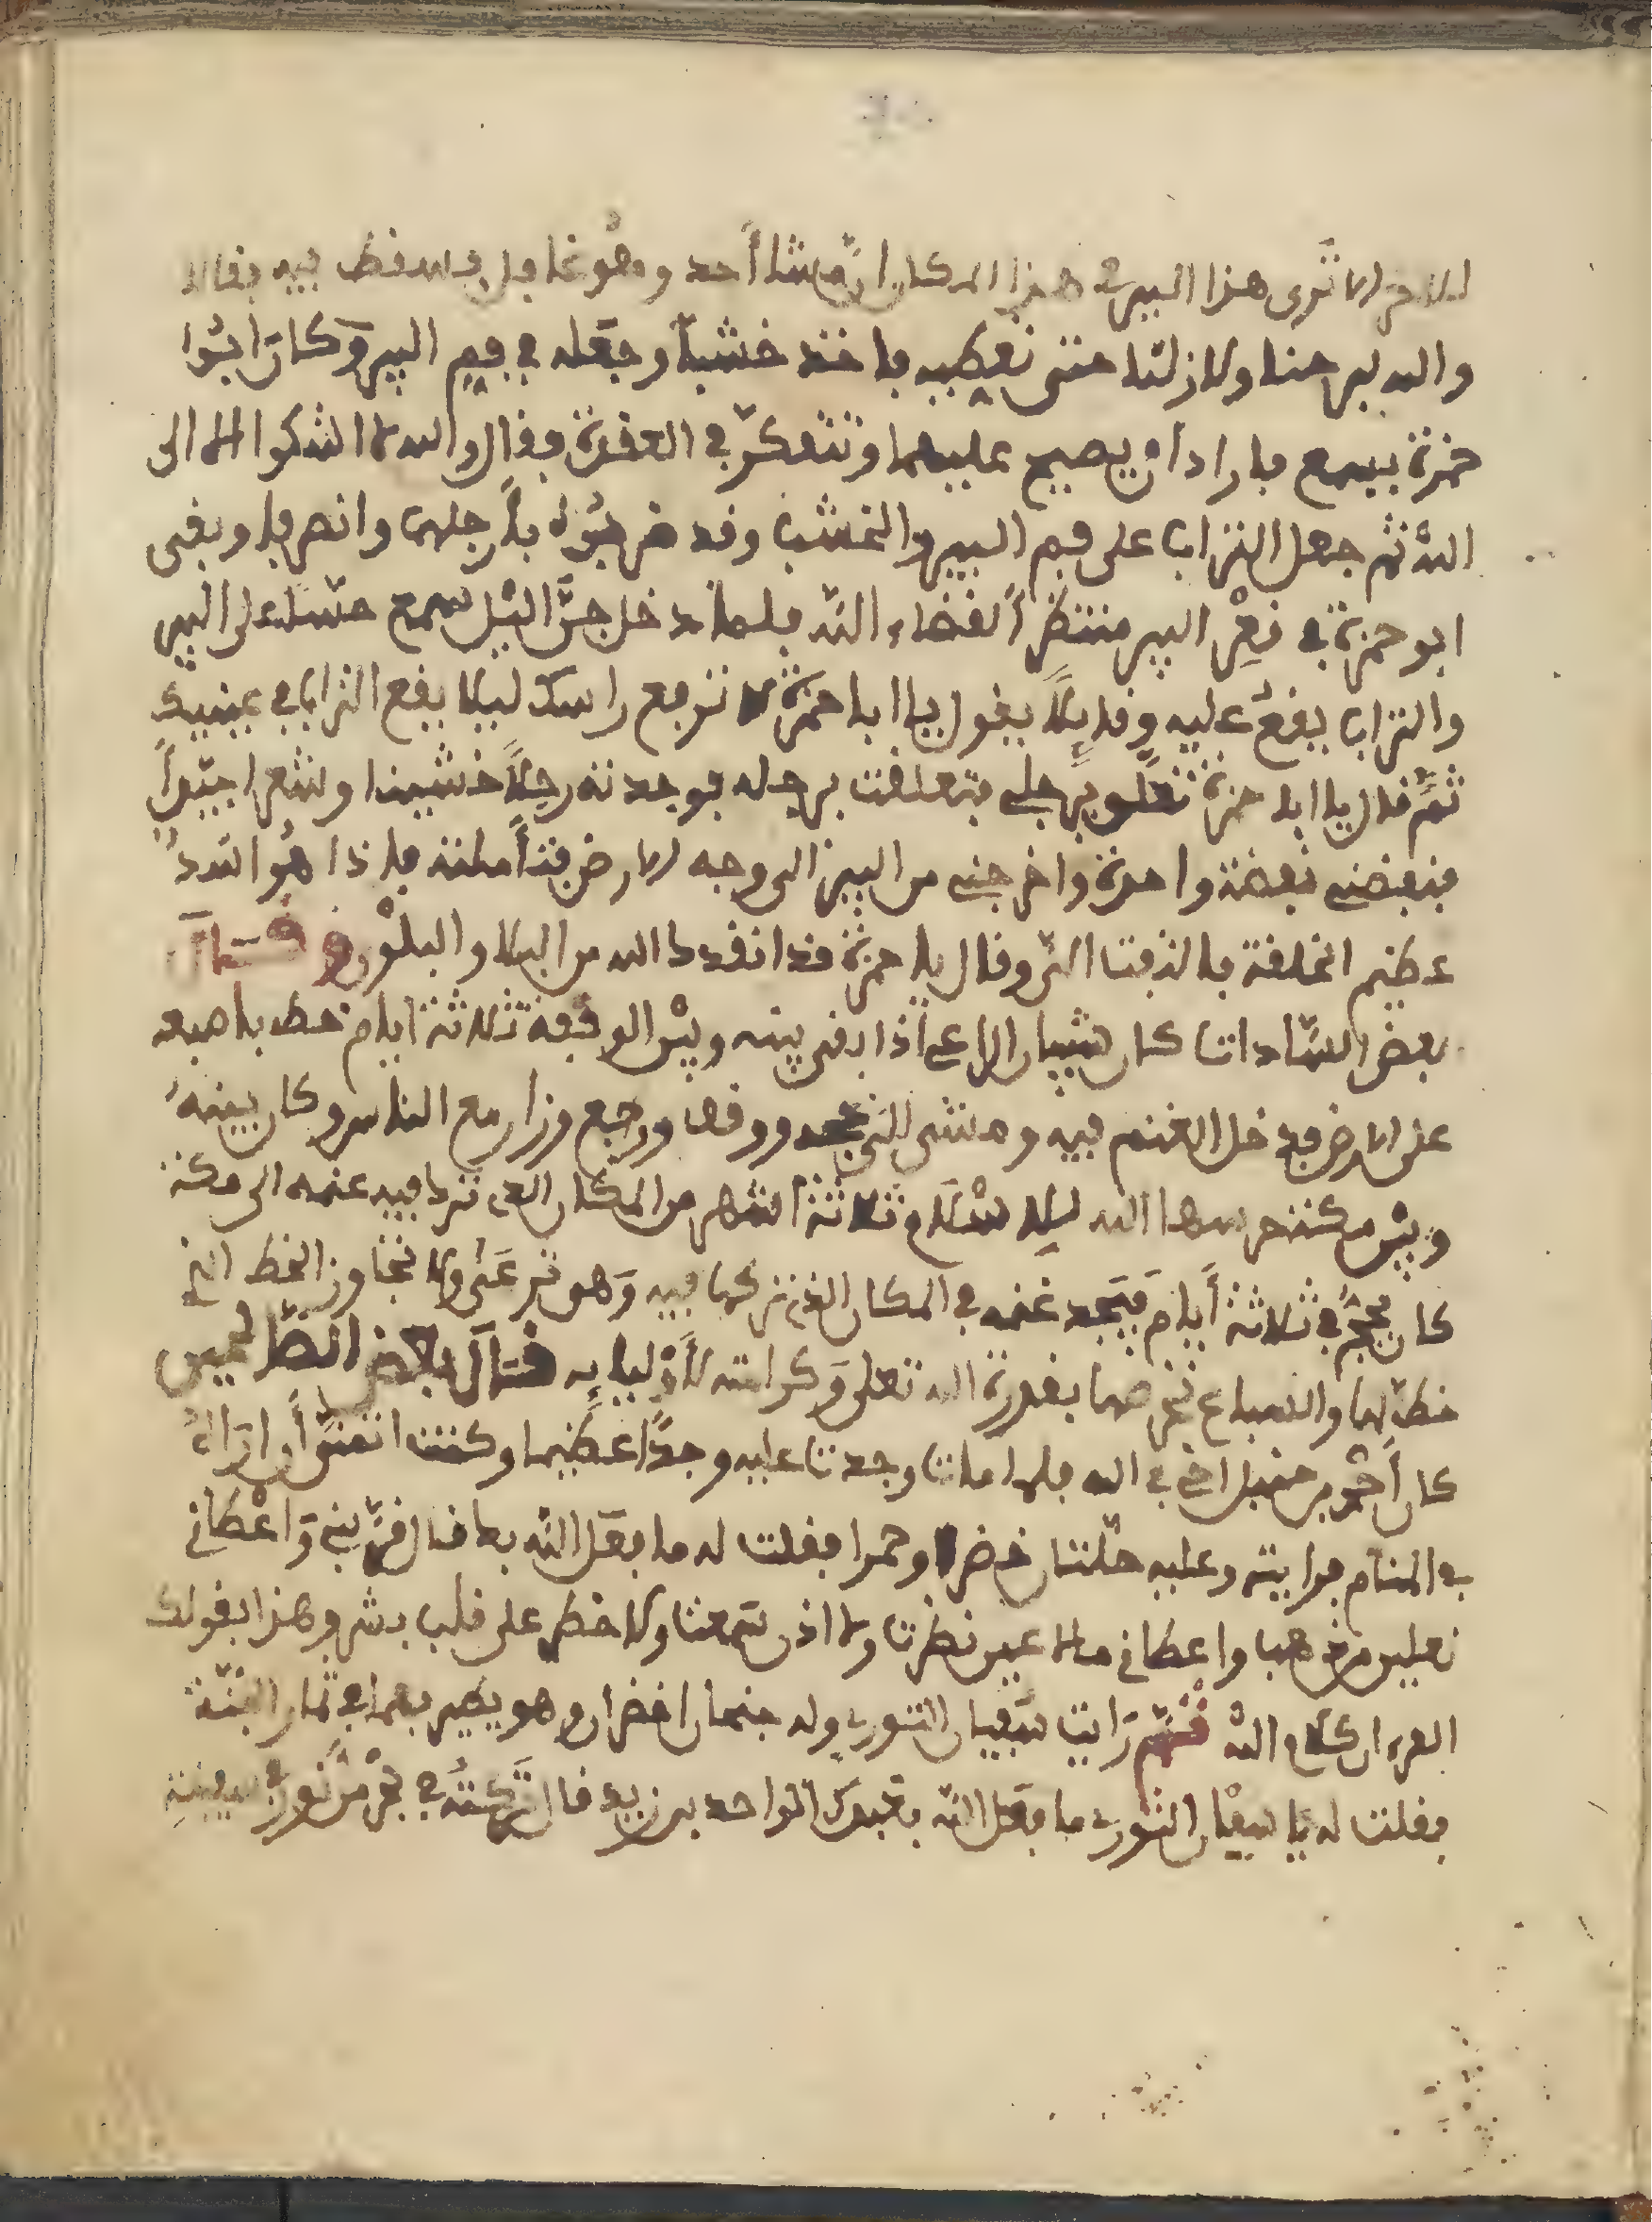 للاخر الا ترى هذا البير في هذا المكان ان مشا احد وهو غافل فيسقط فيه فقال
والله لبرحنا ولا زلنا حتى نغطيه فاخذ خشبا وجعله في فم البير وكان ابوا
حمزة يسمع فاراد ان يصيح عليهما وتفكر في العقدة وقال والله لا اشكوا الا الى
الله ثم جعل التراب على فم البير والخشب وقد ضربوه بأرجلهما وانصرفا وبقى
ابو حمزة في قعر البير منتظراً لقضاء الله فلما دخل جنّ اليل سمع حسا على البير
والتراب يقع عليه وقايلاً يقول يا ابا حمزة لا ترفع راسك ليلا يقع التراب في عينيك
ثمّ قال يا ابا حمزة تعلق برجلي فتعلقت برجله فوجدته رجلاً خشينا وشعرا
فنفضني نفضة واحدة واخرجني من البير الى وجه الارض فتأملته فاذا هو اسد
عظيم الخلقة فالتفت اليّ وقال يا حمزة قد انقدك الله من البلا والبلور وقال
بعض السّادات كان شيبان الراعي اذا بقي بينه وبين الوقفة ثلاثة ايام خط باصبعه
على الارض فيدخل الغنم فيه ومشى للحج ووقف ورجع وزار مع الناس وكان بينه
وبين مكة حرسها الله للاسلام ثلاثة اشهر من المكان الذي ترك فيه غنمه الى مكة
كان يحج في ثلاثة أيام فيجد غنمه في المكان الذي تركها فيه وهو ترعى ولا تجاوز الخط الذي
خطه لها والسباع تحرصها بقدرة الله تعلى وكرامته لأوليايه قال بعض الصّالحين
كان أحمد بن حنبل اخي في الله فلما مات وجدت عليه وجداً عظيما وكنت اتمنّى أن اراه
في المنام فرايته وعليه حلّتان خضرا وحمرا فقلت له ما فعل الله بك قال قرّبني وأعطاني
نعلين من ذهب واعطاني ما لا عين نظرت ولا اذن سمعت ولا خطر على قلب بشر وهذا بقولك
القرءان كلام الله قتم رايت سفيان الثوري وله جنحان اخضران وهو يطير بهما في ثمار الجنّة
فقلت له يا سفيان الثوري ما فعل الله بعبدك الواحد بن زيد قال تركته في بحر من نور في سفينة